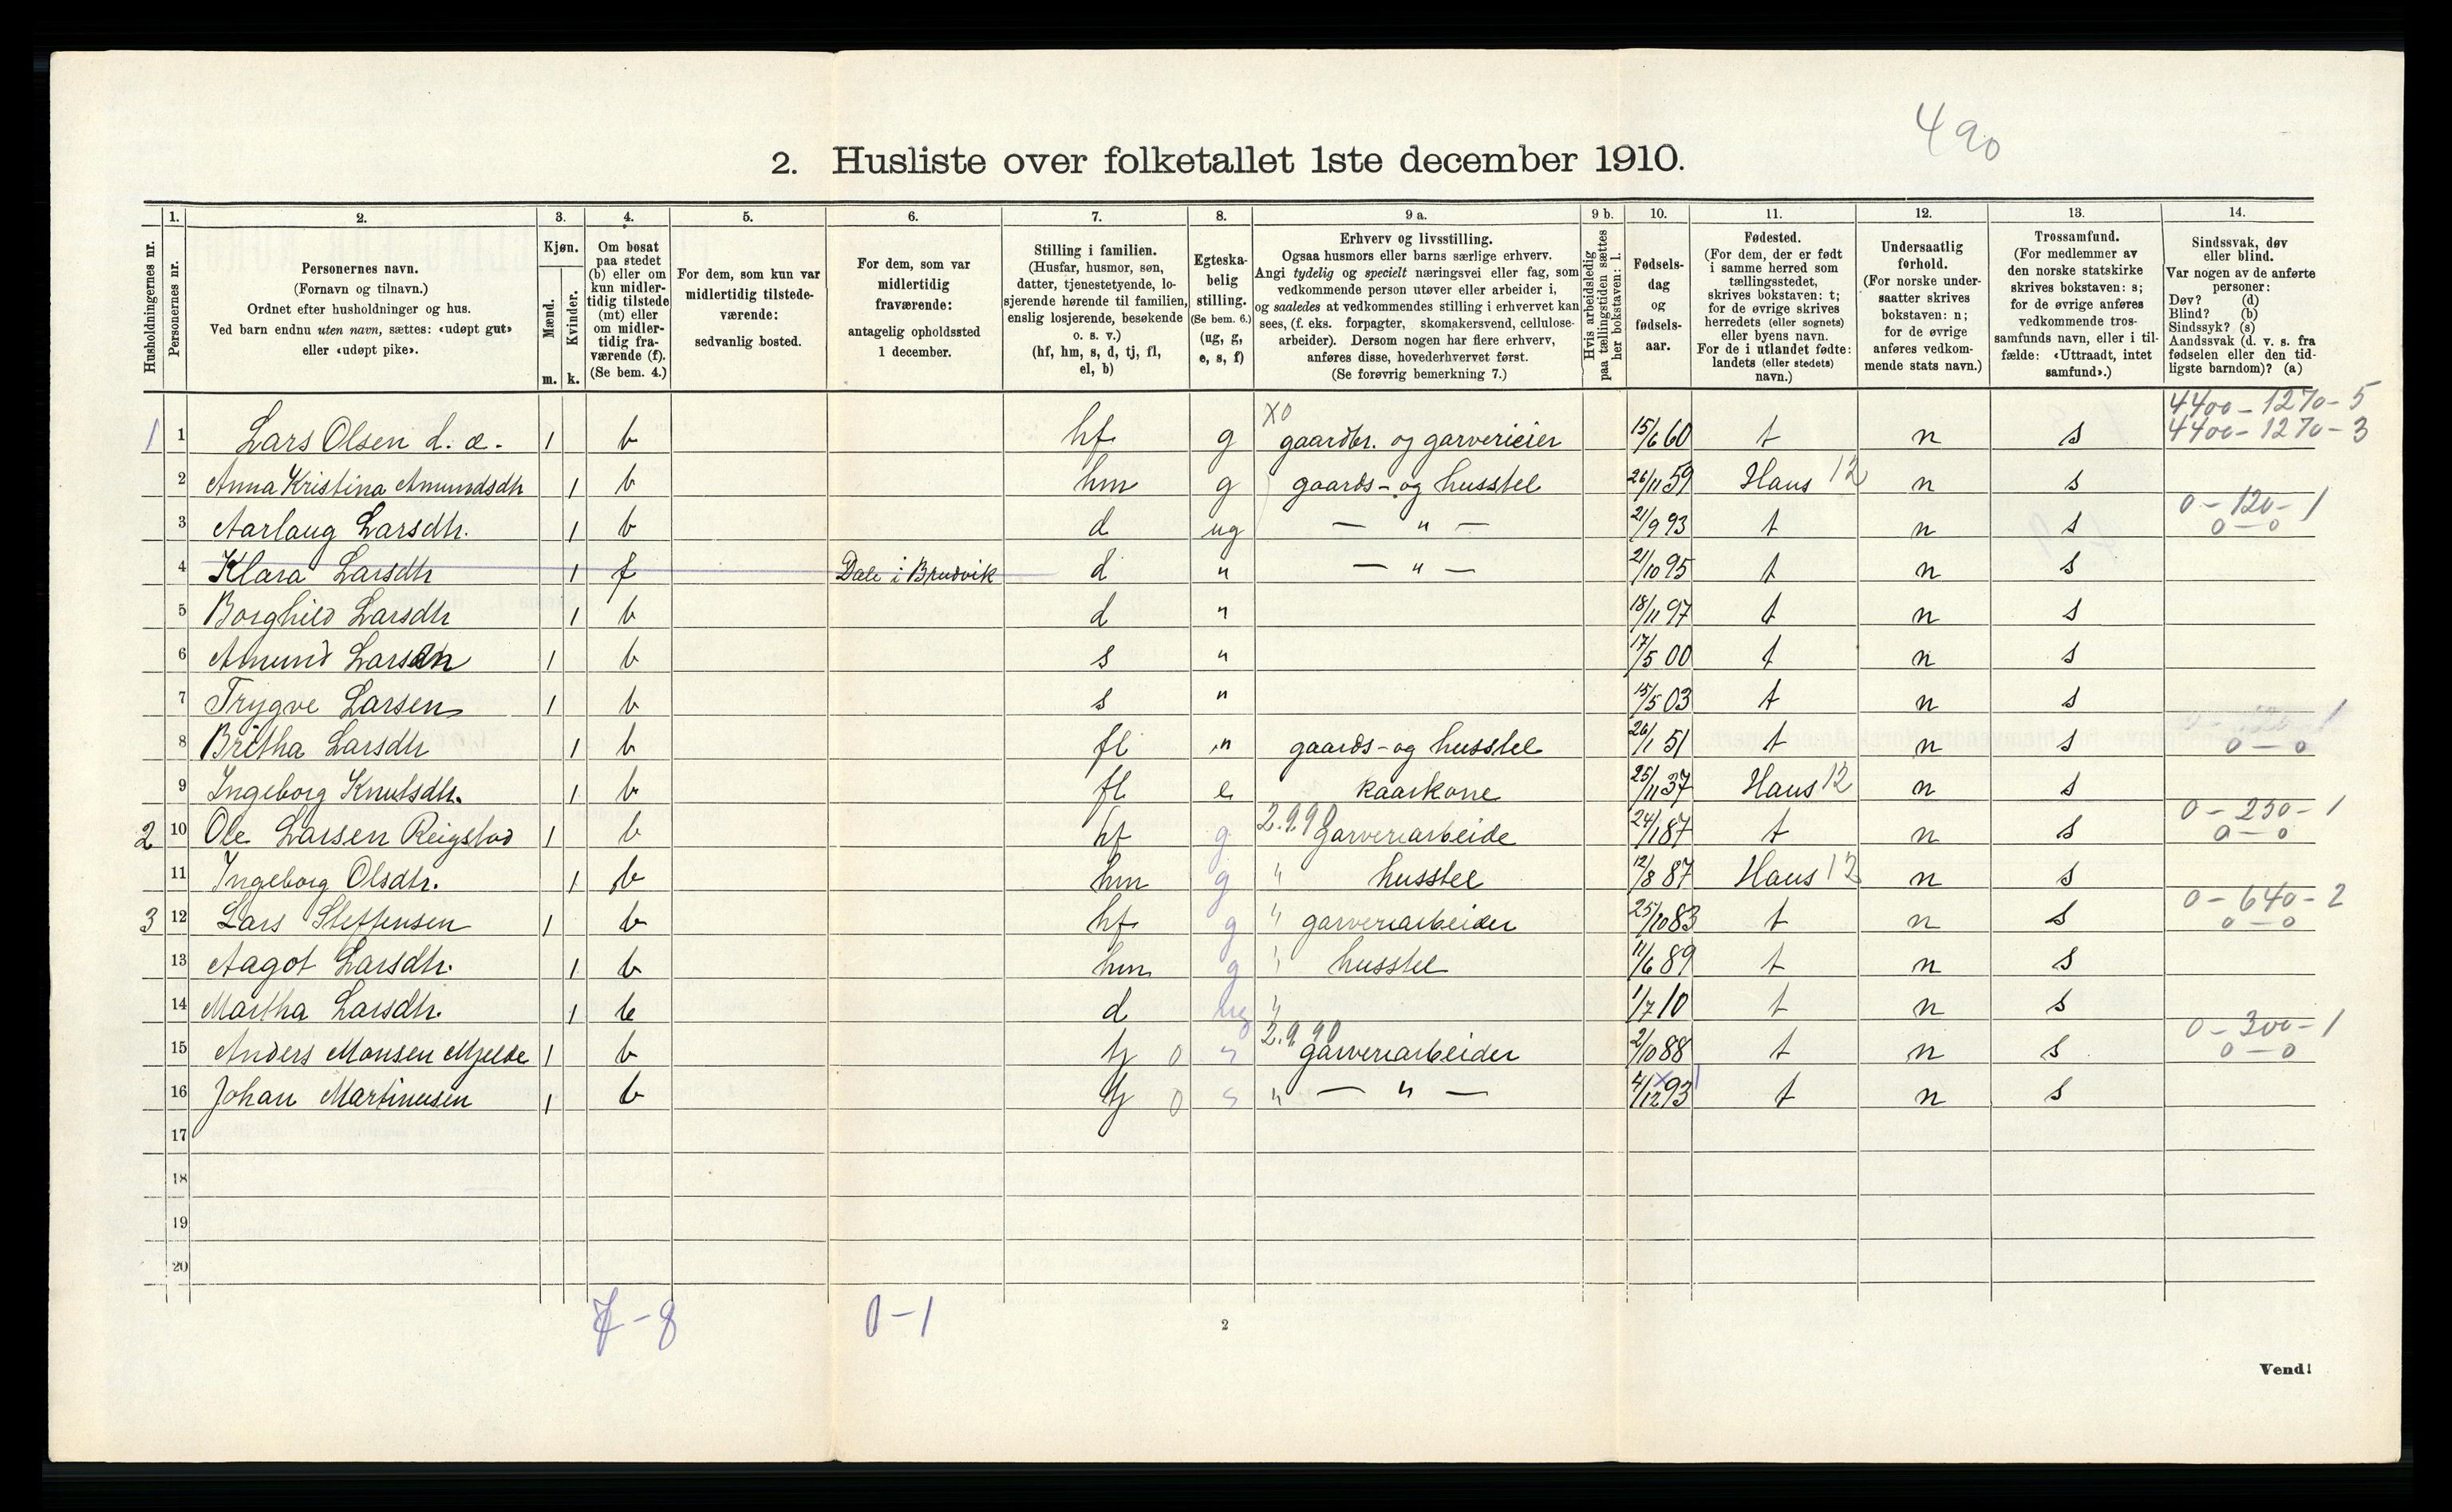 490
2. Husliste over folketallet 1ste december 1910.
Husholdningernes nr.
1.
Personernes nr.
2.
Personernes navn.
(Fornavn og tilnavn.)
Ordnet efter husholdninger og hus.
Ved barn endnu uten navn, sættes: «udøpt gut»
eller «udøpt pike».
3.
Kjøn.
Mænd.
Kvinder.
m. k.
4.
Om bosat
paa stedet
(b) eller om
kun midler-
tidig tilstede
(mt) eller
om midler-
tidig fra-
værende (f).
(Se bem. 4.)
5.
For dem, som kun var
midlertidig tilstede-
værende:
sedvanlig bosted.
6.
For dem, som var
midlertidig
fraværende:
antagelig opholdssted
1 december.
7.
Stilling i familien.
(Husfar, husmor, søn,
datter, tjenestetyende, lo-
sjerende hørende til familien,
enslig losjerende, besøkende
o. s. v.)
(hf, hm, s, d, tj, fl,
el, b)
8.
Egteska-
belig
stilling.
(Se bem. 6.)
(ug, g,
e, s, f)
9 a.
Erhverv og livsstilling.
Ogsaa husmors eller barns særlige erhverv.
Angi tydelig og specielt næringsvei eller fag, som
vedkommende person utøver eller arbeider i,
og saaledes at vedkommendes stilling i erhvervet kan
sees, (f. eks. forpagter, skomakersvend, cellulose-
arbeider). Dersom nogen har flere erhverv,
anføres disse, hovederhvervet først.
(Se forøvrig bemerkning 7.)
9 b.
Hvis arbeidsledig
paa tællingstiden sættes
her bokstaven: l.
10.
Fødsels-
dag
og
fødsels-
aar.
11.
Fødested.
(For dem, der er født
i samme herred som
tællingsstedet,
skrives bokstaven: t;
for de øvrige skrives
herredets (eller sognets)
eller byens navn.
For de i utlandet fødte:
landets (eller stedets)
navn.)
12.
Undersaatlig
forhold.
(For norske under-
saatter skrives
bokstaven: n;
for de øvrige
anføres vedkom-
mende stats navn.)
13.
Trossamfund.
(For medlemmer av
den norske statskirke
skrives bokstaven: s;
for de øvrige anføres
vedkommende tros-
samfunds navn, eller i til-
fælde: «Uttraadt, intet
samfund».)
14.
Sindssvak, døv
eller blind.
Var nogen av de anførte
personer:
Døv? (d)
Blind? (b)
Sindssyk? (s)
Aandssvak (d. v. s. fra
fødselen eller den tid-
ligste barndom)? (a)
4400 - 1270 - 5
1 1 Lars Olsen d. æ. 1 b hf g X0 gaardbr. og garverieier 15/6 60 t n s 4400 - 1270 - 3
2 Anna Kristina Amundsdtr 1 b hm g gaards- og husstel 26/11 59 Haus 12 n s
0 - 120 - 1
3 Aarlaug Larsdtr. 1 b d ug — " — 21/9 93 t n s 0 - 0
4 Klara Larsdtr 1 f Dale i Bruvik d " — " — 21/10 95 t n s
5 Borghild Larsdtr 1 b d " 18/11 97 t n s
6 Amund Larsen 1 b s " 17/5 00 t n s
7 Trygve Larsen 1 b s " 15/5 03 t n s
8 Britha Larsdtr 1 b fl " gaards- og husstel 26/1 51 t n s 0 - 0
9 Ingeborg Knutsdtr. 1 b fl e kaarkone 25/11 37 Haus 12 n s
0 - 250 - 1
2 10 Ole Larsen Reigstad 1 b hf g 2.9.90 garveriarbeide 24/1 87 t n s 0 - 0
11 Ingeborg Olsdtr. 1 b hm g " husstel 12/8 87 Haus 12 n s
0 - 640 - 2
3 12 Lars Steffensen 1 b hf g " garveriarbeider 25/10 83 t n s 0 - 0
13 Aagot Larsdtr. 1 b hm g " husstel 11/6 89 t n s
14 Martha Larsdtr. 1 b d ug " 1/7 10 t n s
0 - 300 - 1
15 Anders Monsen Mjelde 1 b tj 0 s 2.9.90 garveriarbeider 2/10 88 t n s 0 - 0
16 Johan Martinusen 1 b tj 0 s " — " — 4/12 93 t n s
17
18
19
20
7 - 8 0 - 1
2
Vend!